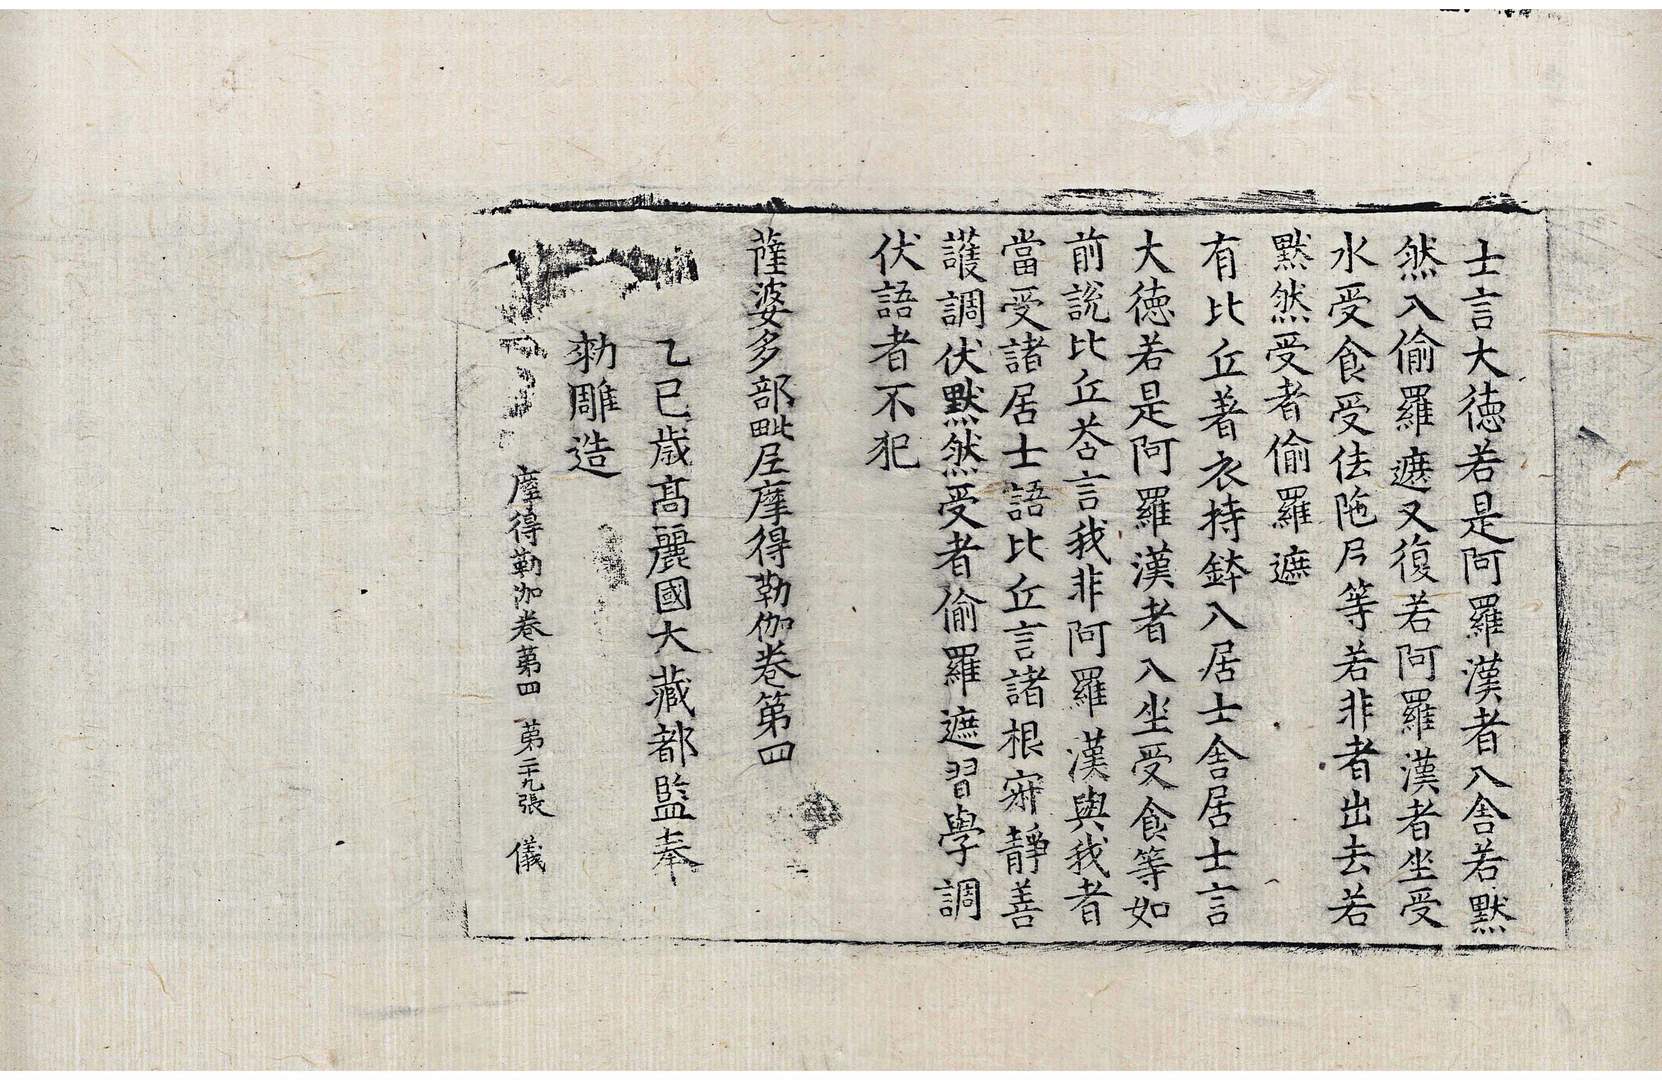 士言大德若是阿羅漢者入舍若默
然入偷羅遮又復若阿羅漢者坐受
水受食受佉陁尼等若非者出去若
默然受者偷羅遮
有比丘著衣持鉢入居士舍居士言
大德若是阿羅漢者入坐受食等如
前說比丘荅言我非阿羅漢與我者
當受諸居士語比丘言諸根寂靜善
護調伏默然受者偷羅遮習學調
伏語者不犯
薩婆多部毗尼摩得勒伽卷第四
乙巳歲高麗國大藏都監奉
勑雕造
摩得勒伽卷第四 第二十九張 儀